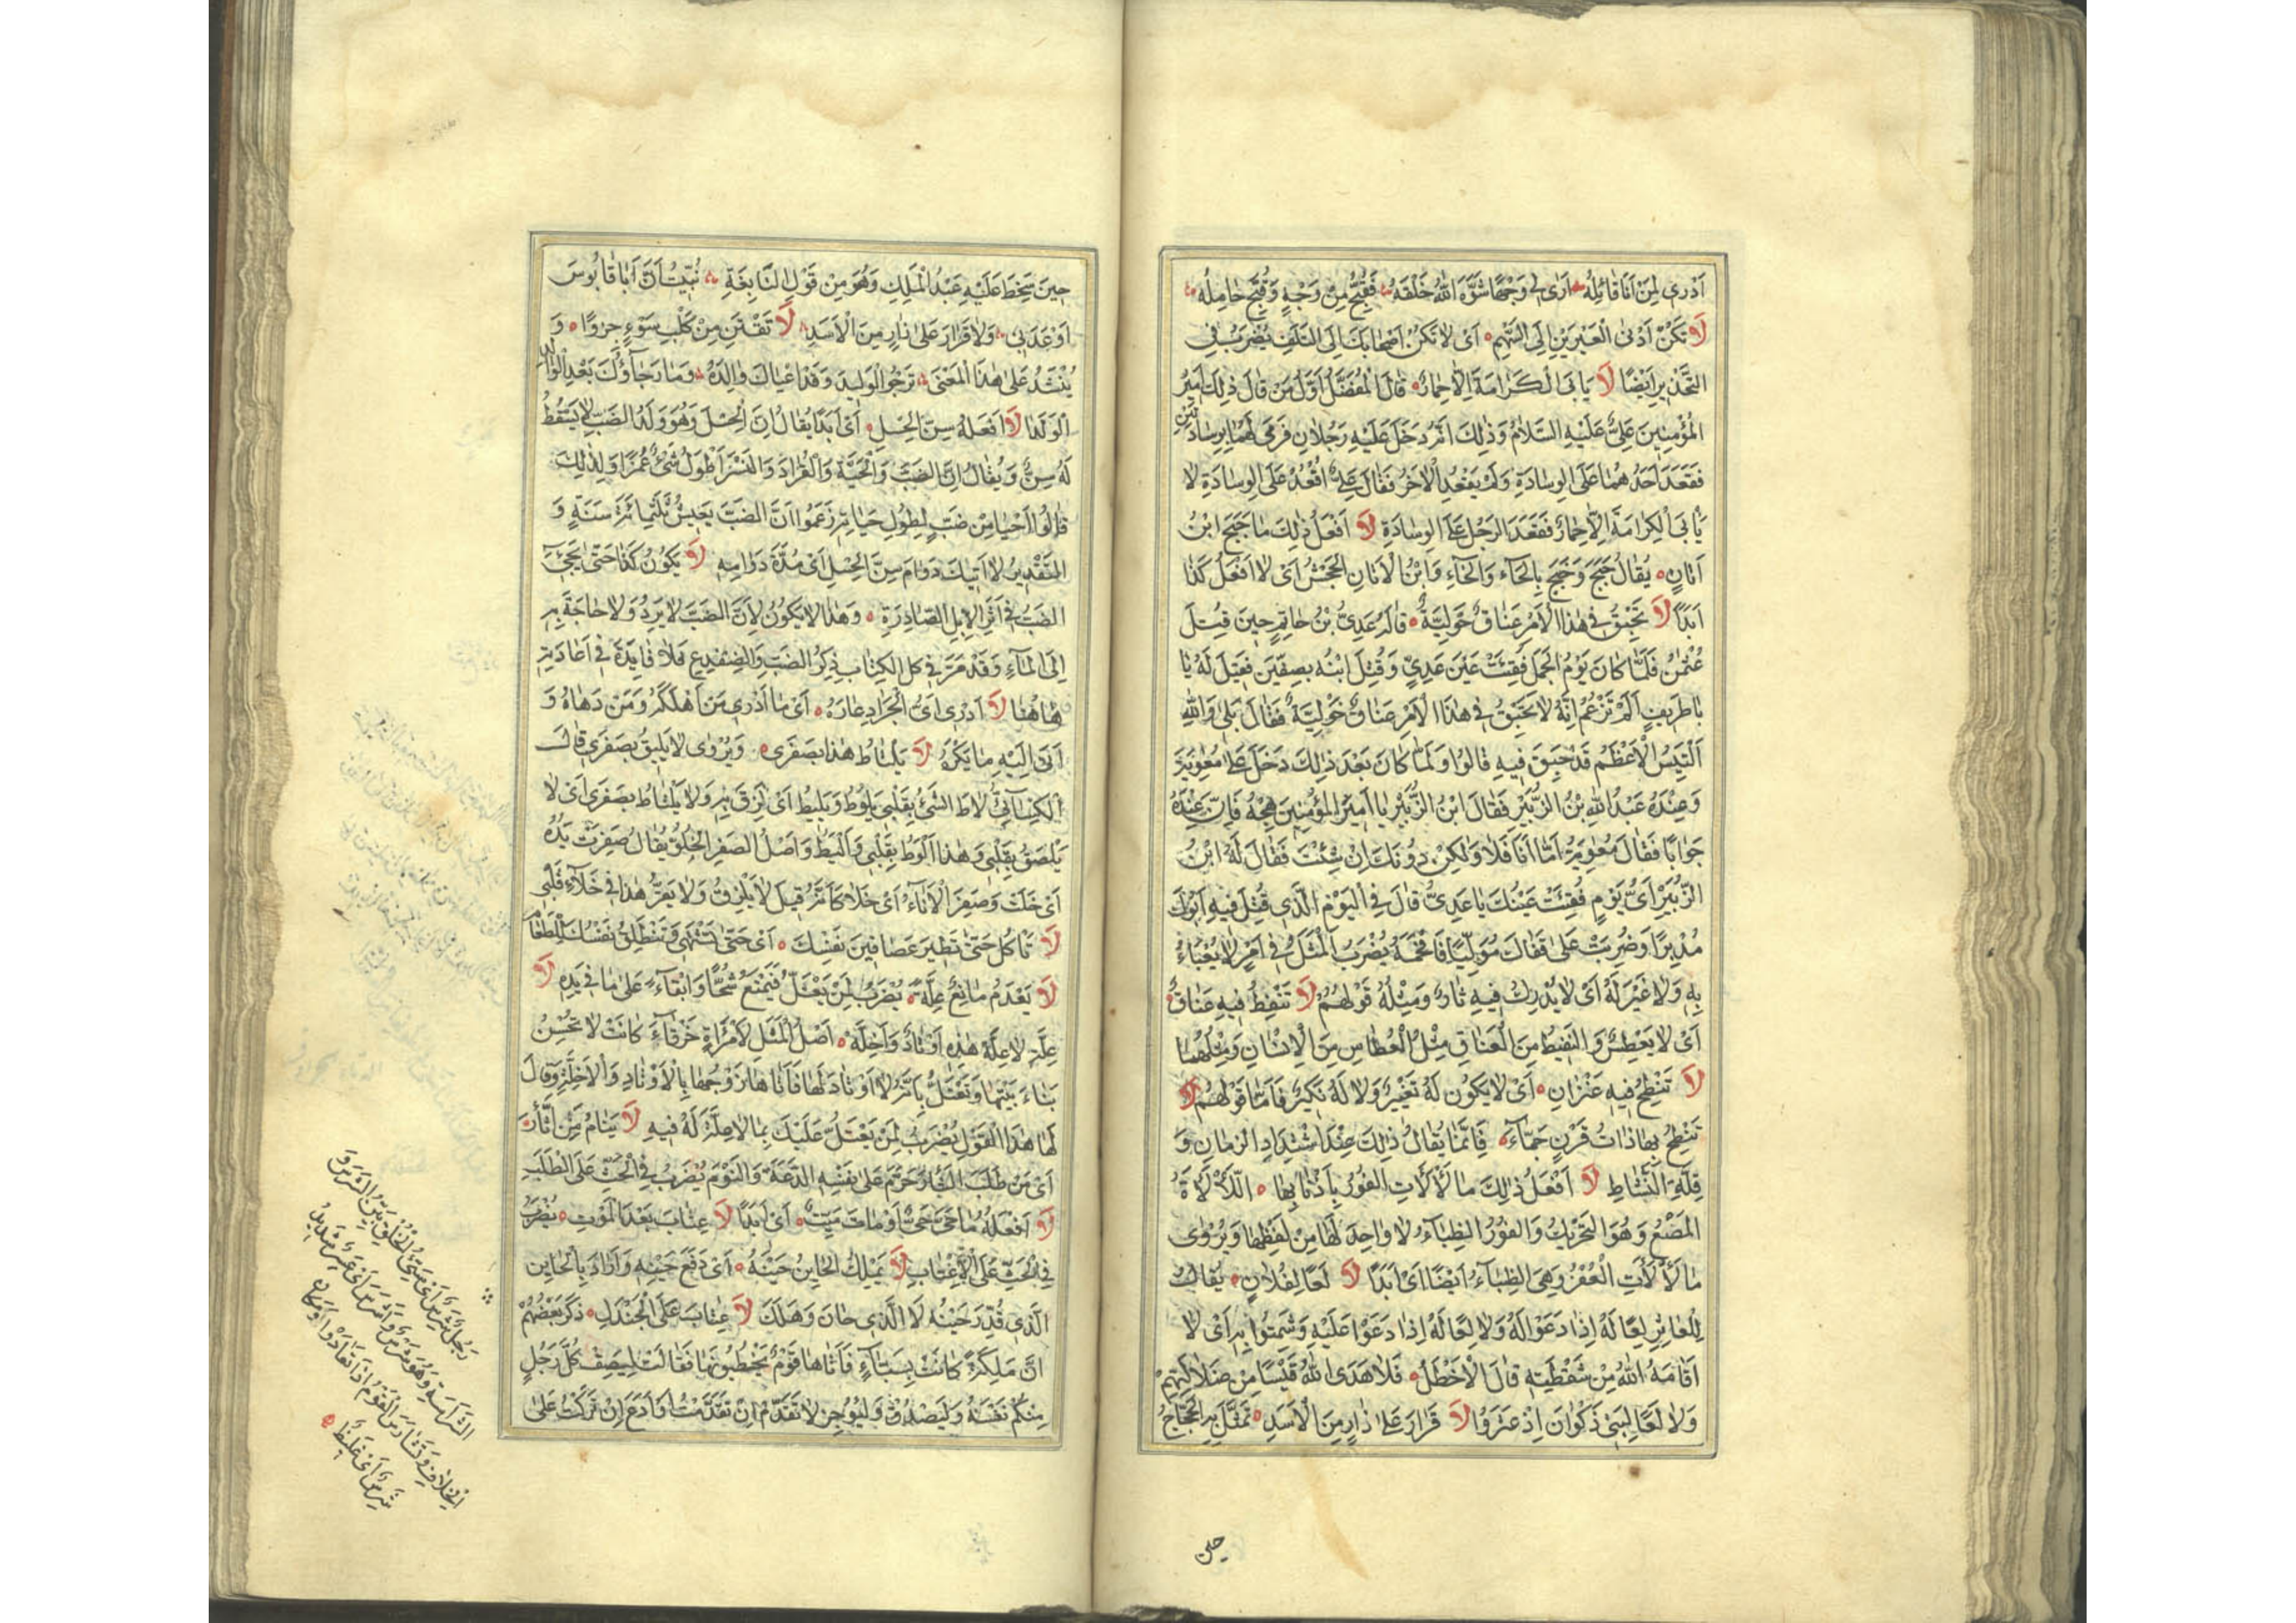 اَدْرِي لِمَنْ اَنَا قَائِلُهْ اَرَى لِي وَجْهًا شَوَّهَ اللهُ خَلْقَهُ فَقُبِّحَ مِنْ وَجْهٍ وَقُبِّحَ حَامِلُهْ
لَا تَكُنْ اَدْنَى الْعَيْرَيْنِ اِلَى السَّهْمِ اَىْ لَا تَكُنْ اَصْحَابَكَ اِلَى التَّلَفِ يُضْرَبُ فِي
التَّحْذِيرِ اَيْضًا لَا يَابَى الْكَرَامَةَ اِلَّا حِمَارٌ قَالَ الْمُفَضَّلُ اَوَّلُ مَنْ قَالَ ذٰلِكَ اَمِيرُ
الْمُؤْمِنِينَ عَلِيٌّ عَلَيْهِ السَّلَامُ وَذٰلِكَ اَنَّهُ دَخَلَ عَلَيْهِ رَجُلَانِ فَرَمَى لَهُمَا بِوِسَادَتَيْنِ
فَقَعَدَ اَحَدُهُمَا عَلَى الْوِسَادَةِ وَلَمْ يَقْعُدِ الْاٰخَرُ فَقَالَ عَلِيٌّ اُقْعُدْ عَلَى الْوِسَادَةِ لَا
يَأْبَى الْكَرَامَةَ اِلَّا حِمَارٌ فَقَعَدَ الرَّجُلُ عَلَى الْوِسَادَةِ لَا اَفْعَلُ ذٰلِكَ مَا جَبَحَ ابْنُ
اَتَانٍ يُقَالُ جَبَحَ وَجَبَخَ بِالْحَاءِ وَالْخَاءِ وَابْنُ الْاَتَانِ الْجَحْشُ اَىْ لَا اَفْعَلُ كَذَا
اَبَدًا لَا تَحْبِقُ فِي هٰذَا الْاَمْرِ عَنَاقٌ حَوْلِيَّةٌ قَالَهُ عَدِيُّ بْنُ حَاتِمٍ حِينَ قُتِلَ
عُثْمٰنُ فَلَمَّا كَانَ يَوْمُ الْجَمَلِ فُقِئَتْ عَيْنُ عَدِيٍّ وَقُتِلَ ابْنُهُ بِصِفِّينَ فَقِيلَ لَهُ يَا
بَا طَرِيفٍ اَلَمْ تَزْعُمْ اِنَّهُ لَا تَحْبِقُ فِي هٰذَا الْاَمْرِ عَنَاقٌ حَوْلِيَّةٌ فَقَالَ بَلَى وَاللهِ
اَلتَّيْسُ الْاَعْظَمُ قَدْ حَبَقَ فِيهِ قَالُوا وَلَمَّا كَانَ بَعْدَ ذٰلِكَ دَخَلَ عَلَى مُعٰوِيَةَ
وَعِنْدَهُ عَبْدُ اللهِ بْنُ الزُّبَيْرِ فَقَالَ ابْنُ الزُّبَيْرِ يَا اَمِيرَ الْمُؤْمِنِينَ هِجْهُ فَاِنَّ عِنْدَهُ
جَوَابًا فَقَالَ مُعٰوِيَةُ اَمَّا اَنَا فَلَا وَلٰكِنْ دُونَكَ اِنْ شِئْتَ فَقَالَ لَهُ ابْنُ
الزُّبَيْرِ اَىَّ يَوْمٍ فُقِئَتْ عَيْنُكَ يَا عَدِيُّ قَالَ فِي الْيَوْمِ الَّذِي قُتِلَ فِيهِ اَبُوكَ
مُدْبِرًا وَضُرِبْتَ عَلَى قَفَاكَ مُوَلِّيًا فَاَفْحَمَهُ يُضْرَبُ الْمَثَلُ فِي اَمْرٍ لَا يُعْبَاءُ
بِهِ وَلَا غِيَرَ لَهُ اَىْ لَا يُدْرِكُ فِيهِ ثَارٌ وَمِثْلُهُ قَوْلُهُمْ لَا تَنْفِطُ فِيهِ عَنَاقٌ
اَىْ لَا يَعْطِسُ وَالنَّفِيطُ مِنَ الْعَنَاقِ مِثْلُ الْعُطَاسِ مِنَ الْاِنْسَانِ وَمِثْلُهُمَا
لَا تَنْطِحُ فِيهِ عَنْزَانِ اَىْ لَا يَكُونُ لَهُ تَغْيِيرٌ وَلَا لَهُ نَكِيرٌ فَاَمَّا قَوْلُهُمْ لَا
تَنْطِحُ بِهَا ذَاتُ قَرْنٍ جَمَّاءَ فَاِنَّمَا يُقَالُ ذٰلِكَ عِنْدَ اشْتِدَادِ الزَّمَانِ وَ
قِلَّةِ النَّشَاطِ لَا اَفْعَلُ ذٰلِكَ مَا لَأْلَأَتِ الْفُورُ بِاَذْنَابِهَا اللَّأْلَأَةُ
الْمَصْعُ وَهُوَ التَّحْرِيكُ وَالْفُورُ الظِّبَاءُ لَا وَاحِدَ لَهَا مِنْ لَفْظِهَا وَيُرْوَى
مَا لَأْلَأَتِ الْعُفْرُ وَهِيَ الظِّبَاءُ اَيْضًا اَىْ اَبَدًا لَا لَعًا لِفُلَانٍ يُقَالُ
لِلْعَاثِرِ لَعًا لَهُ اِذَا دَعَوْا لَهُ وَلَا لَعًا لَهُ اِذَا دَعَوْا عَلَيْهِ وَشَمِتُوا بِهِ اَىْ لَا
اَقَامَهُ اللهُ مِنْ سَقْطَتِهِ قَالَ الْاَخْطَلُ فَلَا هَدَى اللهُ قَيْسًا مِنْ ضَلَالَتِهِمْ
وَلَا لَعًا لِبَنِي ذَكْوَانَ اِذْ عَثَرُوا لَا قَرَارَ عَلَى زَارٍ مِنَ الْاَسَدِ تَمَثَّلَ بِهِ الْحَجَّاجُ
حين
حِينَ سَخِطَ عَلَيْهِ عَبْدُ الْمَلِكِ وَهُوَ مِنْ قَوْلِ النَّابِغَةِ نُبِّيتُ اَنَّ اَبَا قَابُوسَ
اَوْعَدَنِي وَلَا قَرَارَ عَلَى زَارٍ مِنَ الْاَسَدِ لَا تَقْتَنِ مِنْ كَلْبِ سَوْءٍ جِرْوًا وَ
يُنْشَدُ عَلَى هٰذَا الْمَعْنَى تَرْجُو الْوَلِيدَ وَقَدْ اَعْيَاكَ وَالِدُهُ وَمَا رَجَاؤُكَ بَعْدَ الْوَالِدِ
الْوَلَدَا لَا اَفْعَلُهُ سِنَّ الْحِسْلِ اَىْ اَبَدًا يُقَالُ اِنَّ الْحِسْلَ وَهُوَ وَلَدُ الضَّبِّ لَا يَسْقُطُ
لَهُ سِنٌّ وَيُقَالُ اِنَّ الضَّبَّ وَالْحَيَّةَ وَالْقُرَادَ وَالنَّسْرَ اَطْوَلُ شَىْءٍ عُمْرًا وَلِذٰلِكَ
قَالُوا اَحْيَا مِنْ ضَبٍّ لِطُولِ حَيَاتِهِ زَعَمُوا اَنَّ الضَّبَّ يَعِيشُ ثَلٰثَمِائَةِ سَنَةٍ وَ
التَّقْدِيرُ لَا اٰتِيكَ دَوَامَ سِنِّ الْحِسْلِ اَىْ مُدَّةَ دَوَامِهِ لَا يَكُونُ كَذَا حَتَّى يَجِيءَ
الضَّبُّ فِي اَثَرِ الْاِبِلِ الصَّادِرَةِ وَهٰذَا لَا يَكُونُ لِاَنَّ الضَّبَّ لَا يَرِدُ وَلَا حَاجَةَ بِهِ
اِلَى الْمَاءِ وَقَدْ مَرَّ فِي كل الْكِتَابِ ذِكْرُ الضَّبِّ وَالضِّفْدِعِ فَلَا فَايِدَةَ فِي اِعَادَتِهِ
هٰاهُنَا لَا اَدْرِي اَىُّ الْجَرَادِ عَارَهُ اَىْ مَا اَدْرِي مَنْ اَهْلَكَهُ وَمَنْ دَهَاهُ وَ
اَتَى اِلَيْهِ مَا يَكْرَهُ لَا يَلْتَاطُ هٰذَا بِصَفَرِي وَيُرْوَى لَا يَلِيقُ بِصَفَرِي قَالَ
الْكِسَائِيُّ لَاطَ الشَّىْءُ بِقَلْبِي يَلُوطُ وَيَلِيطُ اَىْ لَزِقَ بِهِ وَلَا يَلْتَاطُ بِصَفَرِي اَىْ لَا
يَلْصَقُ بِقَلْبِي وَهٰذَا اَلْوَطُ بِقَلْبِي وَاَلْيَطُ وَاَصْلُ الصَّفَرِ الْخُلُوُّ يُقَالُ صَفِرَتْ يَدُهُ
اَىْ خَلَتْ وَصَفِرَ الْاِنَاءُ اَىْ خَلَا كَاَنَّهُ قِيلَ لَا يَلْزِقُ وَلَا يَقِرُّ هٰذَا فِي خَلَاءِ قَلْبِي
لَا تَأْكُلْ حَتَّى تَطِيرَ عَصَافِيرُ نَفْسِكَ اَىْ حَتَّى تَشْتَهِيَ وَتَنْطَلِقَ نَفْسُكَ لِلطَّعَامِ
لَا يَعْدَمُ مَانِعٌ عِلَّةً يُضْرَبُ لِمَنْ يَعْتَلُّ فَيَمْنَعُ شُحًّا وَاِبْقَاءً عَلَى مَا فِي يَدِهِ لَا
عِلَّةَ لَا عِلَّةَ هٰذِهِ اَوْتَادٌ وَاَخِلَّةٌ اَصْلُ الْمَثَلِ لِامْرَاَةٍ خَرْقَاءَ كَانَتْ لَا تُحْسِنُ
بِنَاءَ بَيْتِهَا وَتَعْتَلُّ بِاَنَّهُ لَا اَوْتَادَ لَهَا فَاَتَاهَا زَوْجُهَا بِالْاَوْتَادِ وَالْاَخِلَّةِ وَقَالَ
لَهَا هٰذَا الْقَوْلَ يُضْرَبُ لِمَنْ يَعْتَلُّ عَلَيْكَ بِمَا لَا عِلَّةَ لَهُ فِيهِ لَا يَنَامُ مَنْ اَثْاَرَ
اَىْ مَنْ طَلَبَ الثَّارَ حَرَّمَ عَلَى نَفْسِهِ الدَّعَةَ وَالنَّوْمَ يُضْرَبُ فِي الْحَثِّ عَلَى الطَّلَبِ
لَا اَفْعَلُهُ مَا حَىَّ حَىٌّ اَوْ مَاتَ مَيِّتٌ اَىْ اَبَدًا لَا عِتَابَ بَعْدَ الْمَوْتِ يُضْرَبُ
فِي الْحَثِّ عَلَى الْاِعْتَابِ لَا يَمْلِكُ الْحَايِنُ حَيْنَهُ اَىْ دَفْعَ حَيْنِهِ وَاَرَادَ بِالْحَايِنِ
الَّذِي قُدِّرَ حَيْنُهُ لَا الَّذِي حَانَ وَهَلَكَ لَا عِتَابَ عَلَى الْجَنْدَلِ ذَكَرَ بَعْضُهُمْ
اَنَّ مَلِكَةً كَانَتْ بِسَبَاءٍ فَاَتَاهَا قَوْمٌ يَخْطُبُونَهَا فَقَالَتْ لِيَصِفْ كُلُّ رَجُلٍ
مِنْكُمْ نَفْسَهُ وَلْيَصْدُقْ وَلْيُوجِزْ لَا تَقَدَّمُ اِنْ تَقَدَّمْتُ اَوْ اَدَعُ اِنْ تَرَكْتُ عَلَى
رَجُلٌ شَرِسٌ اَىْ سَيِّئُ الْخُلُقِ بَيِّنُ الشَّرَسِ وَ
الشَّرَاسَةِ وَهُوَ شَرِسٌ وَاَشْرَسُ اَىْ عَسِرٌ شَدِيدُ
الْخِلَافِ وَتَشَارَسَ الْقَوْمُ اِذَا تَعَادَوْا وَمَكَانٌ
شَرِسٌ اَىْ غَلِيظٌ